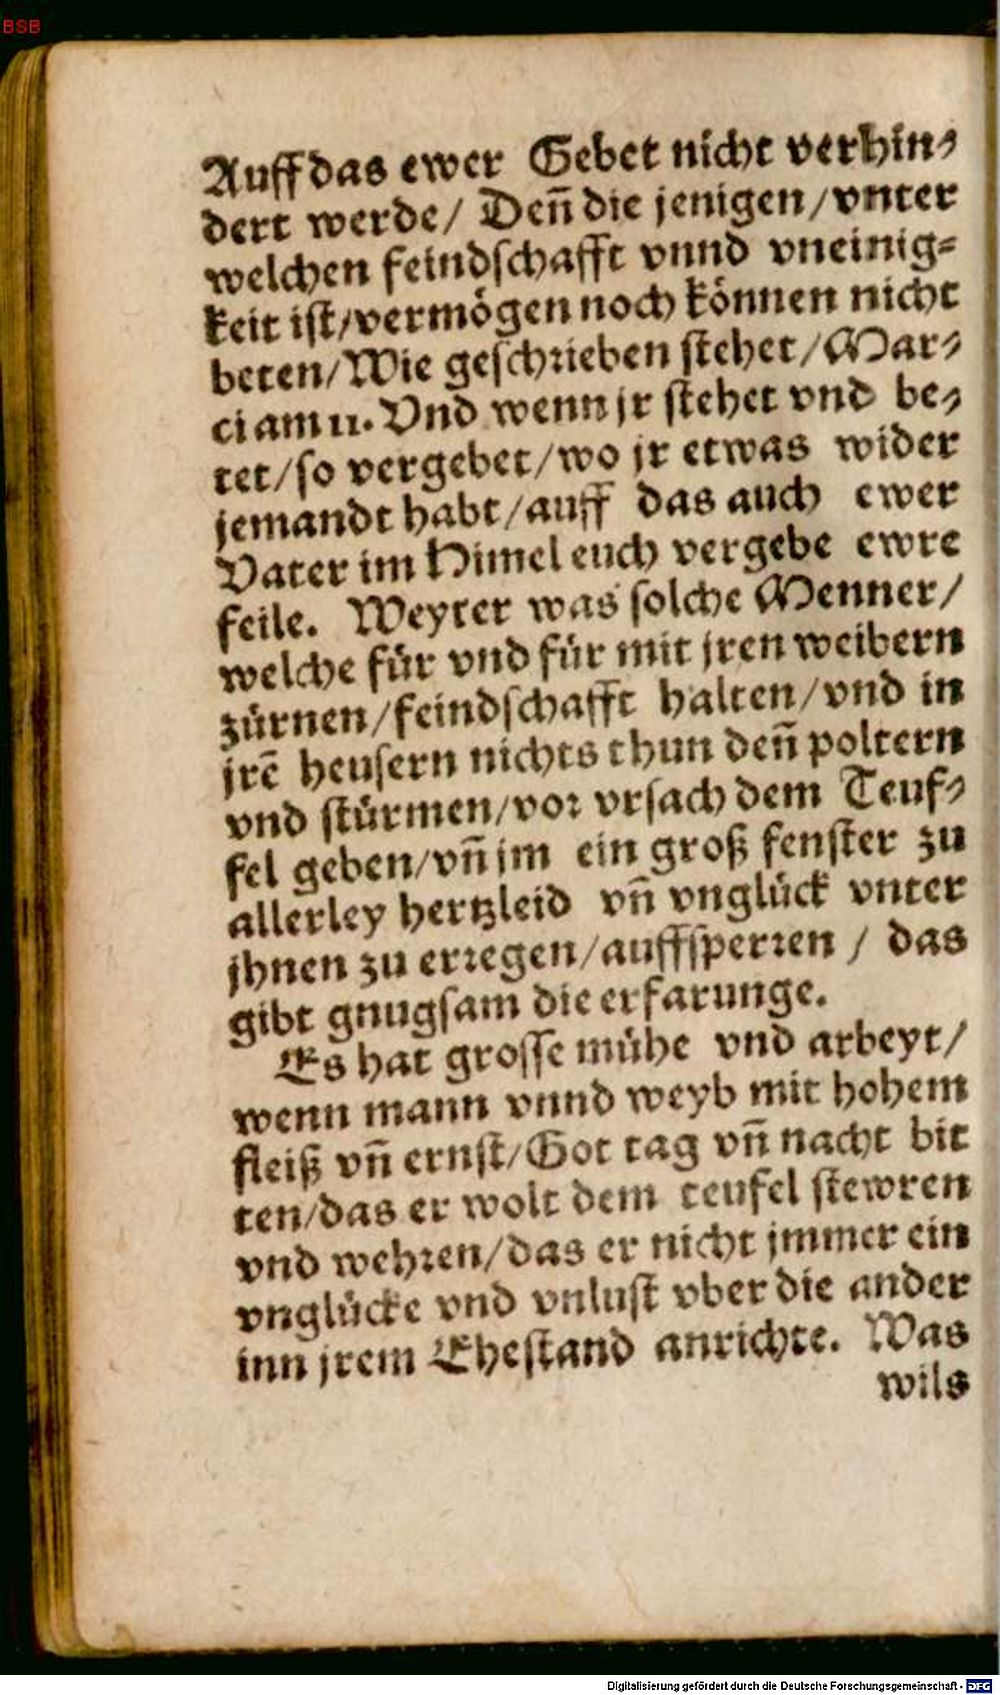 BSB
Auff das ewer Gebet nicht verhin⸗
dert werde/ Deñ die jenigen/vnter
welchen feindschafft vnnd vneinig⸗
keit ist/vermögen noch können nicht
beten/Wie geschrieben stehet/Mar⸗
ci am 11. Vnd wenn jr stehet vnd be⸗
tet/so vergebet/wo jr etwas wider
jemandt habt/auff das auch ewer
Vater im Himel euch vergebe ewre
feile. Weyter was solche Menner/
welche für vnd für mit jren weibern
zürnen/feindschafft halten/vnd in
jrẽ heusern nichts thun deñ poltern
vnd stürmen/vor vrsach dem Teuf⸗
fel geben/vñ jm ein groß fenster zu
allerley hertzleid vñ vnglück vnter
jhnen zu erregen/auffsperren / das
gibt gnugsam die erfarunge.
Es hat grosse mühe vnd arbeyt/
wenn mann vnnd weyb mit hohem
fleiß vñ ernst/Got tag vñ nacht bit
ten/das er wolt dem teufel stewren
vnd wehren/das er nicht jmmer ein
vnglücke vnd vnlust vber die ander
inn jrem Ehestand anrichte. Was
wils
Digitalisierung gefördert durch die Deutsche Forschungsgemeinschaft - DFG